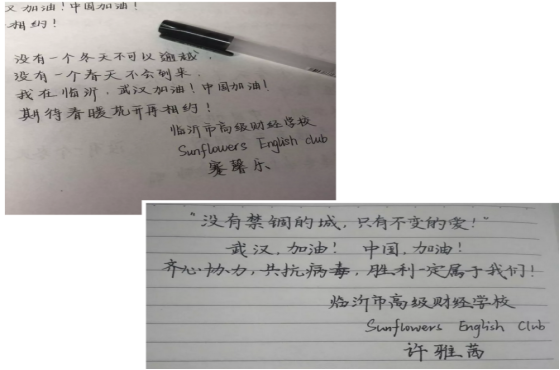 又加油！中国加油！
相约！
没有一个冬天不可以逾越，
没有一个春天不会到来。
我在临沂，武汉加油！中国加油！
期待春暖花开再相约！
临沂市高级财经学校
Sunflowers English club
骞馨乐
“没有禁锢的城，只有不变的爱！”
武汉，加油！中国，加油！
齐心协力，共抗病毒，胜利一定属于我们！
临沂市高级财经学校
Sunflowers English Club
许雅茜